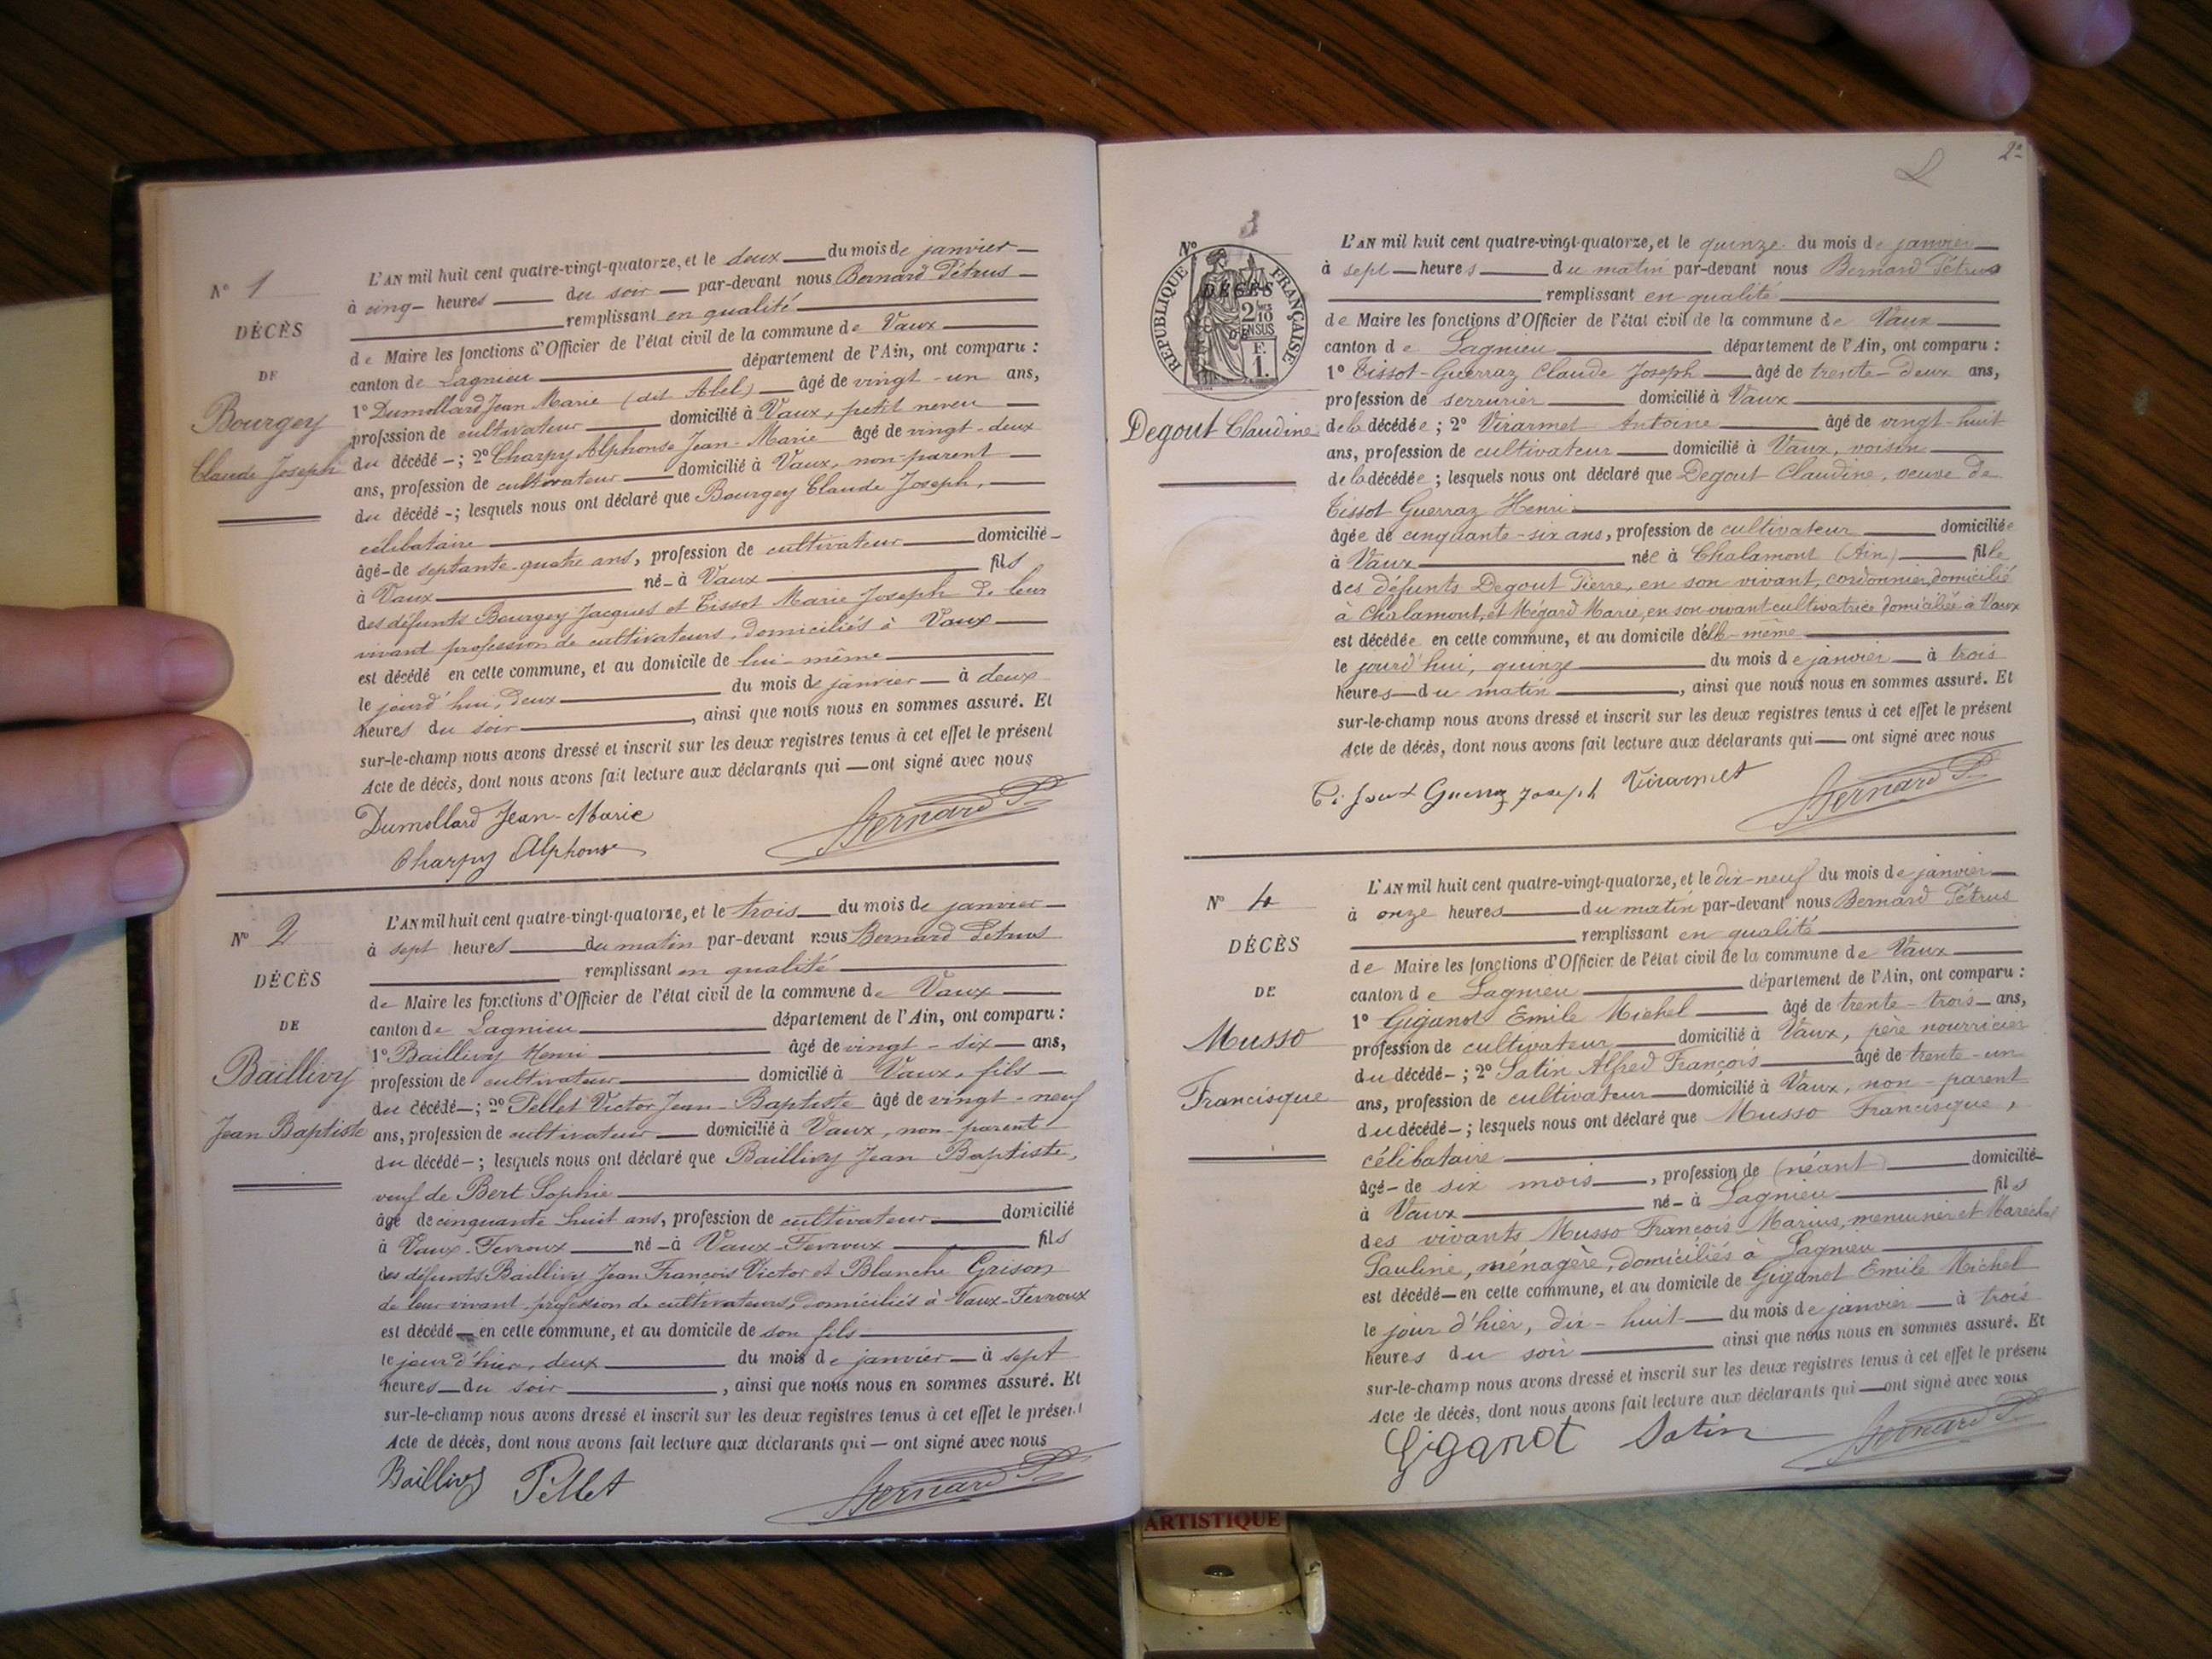 N° 1
DÉCÈS
DE
Bourgey
Claude Joseph
L'AN mil huit cent quatre-vingt-quatorze, et le deux du mois de janvier
à cinq heures du soir par-devant nous Bernard Pétrus
remplissant en qualité
de Maire les fonctions d'Officier de l'état civil de la commune de Vaux
canton de Lagnieu département de l'Ain, ont comparu :
1° Dumollard Jean Marie (dit Abel) âgé de vingt-un ans,
profession de cultivateur domicilié à Vaux, petit neveu
du décédé ; 2° Charpy Alphonse Jean-Marie âgé de vingt-deux
ans, profession de cultivateur domicilié à Vaux, non-parent
du décédé ; lesquels nous ont déclaré que Bourgey Claude Joseph,
célibataire
âgé de septante-quatre ans, profession de cultivateur domicilié
à Vaux né à Vaux fils
des défunts Bourgey Jacques et Tissot Marie Joseph de leur
vivant profession de cultivateurs, domiciliés à Vaux
est décédé en cette commune, et au domicile de lui-même
le jourd'hui, deux du mois de janvier à deux
heures du soir, ainsi que nous nous en sommes assuré. Et
sur-le-champ nous avons dressé et inscrit sur les deux registres tenus à cet effet le présent
Acte de décès, dont nous avons fait lecture aux déclarants qui ont signé avec nous
Dumollard Jean-Marie
Charpy Alphonse
Bernard P
N° 2
DÉCÈS
DE
Baillivy
Jean Baptiste
L'AN mil huit cent quatre-vingt-quatorze, et le trois du mois de janvier
à sept heures du matin par-devant nous Bernard Pétrus
remplissant en qualité
de Maire les fonctions d'Officier de l'état civil de la commune de Vaux
canton de Lagnieu département de l'Ain, ont comparu :
1° Baillivy Henri âgé de vingt-six ans,
profession de cultivateur domicilié à Vaux, fils
du décédé ; 2° Pellet Victor Jean-Baptiste âgé de vingt-neuf
ans, profession de cultivateur domicilié à Vaux, non-parent
du décédé ; lesquels nous ont déclaré que Baillivy Jean Baptiste,
veuf de Bert Sophie
âgé de cinquante huit ans, profession de cultivateur domicilié
à Vaux-Fevroux né à Vaux-Fevroux fils
des défunts Baillivy Jean François Victor et Blanche Grison
de leur vivant profession de cultivateurs, domiciliés à Vaux-Fevroux
est décédé en cette commune, et au domicile de son fils
le jour d'hier, deux du mois de janvier à sept
heures du soir, ainsi que nous nous en sommes assuré. Et
sur-le-champ nous avons dressé et inscrit sur les deux registres tenus à cet effet le présent
Acte de décès, dont nous avons fait lecture aux déclarants qui ont signé avec nous
Baillivy Pellet Bernard P
2e
N° 3
RÉPUBLIQUE FRANÇAISE
DÉCÈS
2/10 EN SUS
DE
F.
1.
Degout Claudine
L'AN mil huit cent quatre-vingt-quatorze, et le quinze du mois de janvier
à sept heures du matin par-devant nous Bernard Pétrus
remplissant en qualité
de Maire les fonctions d'Officier de l'état civil de la commune de Vaux
canton de Lagnieu département de l'Ain, ont comparu :
1° Tissot-Guerraz Claude Joseph âgé de trente-deux ans,
profession de serrurier domicilié à Vaux
de la décédée ; 2° Virarmet Antoine âgé de vingt-huit
ans, profession de cultivateur domicilié à Vaux, voisin
de la décédée ; lesquels nous ont déclaré que Degout Claudine, veuve de
Tissot Guerraz Henri
âgée de cinquante-six ans, profession de cultivateur domiciliée
à Vaux née à Chalamont (Ain) fille
des défunts Degout Pierre, en son vivant, cordonnier, domicilié
à Chalamont, et Mégard Marie, en son vivant cultivatrice domiciliée à Vaux
est décédée en cette commune, et au domicile d'elle-même
le jourd'hui, quinze du mois de janvier à trois
heures du matin, ainsi que nous nous en sommes assuré. Et
sur-le-champ nous avons dressé et inscrit sur les deux registres tenus à cet effet le présent
Acte de décès, dont nous avons fait lecture aux déclarants qui ont signé avec nous
Guerraz Joseph Virarmet Bernard P
N° 4
DÉCÈS
DE
Musso
Francisque
L'AN mil huit cent quatre-vingt-quatorze, et le dix-neuf du mois de janvier
à onze heures du matin par-devant nous Bernard Pétrus
remplissant en qualité
de Maire les fonctions d'Officier de l'état civil de la commune de Vaux
canton de Lagnieu département de l'Ain, ont comparu :
1° Giganot Emile Michel âgé de trente-trois ans,
profession de cultivateur domicilié à Vaux, père nourricier
du décédé ; 2° Satin Alfred François âgé de trente-un
ans, profession de cultivateur domicilié à Vaux, non-parent
du décédé ; lesquels nous ont déclaré que Musso Francisque,
célibataire
âgé de six mois, profession de (néant) domicilié
à Vaux né à Lagnieu fils
des vivants Musso François Marius, menuisier et Maréchal
Pauline, ménagère, domiciliés à Lagnieu
est décédé en cette commune, et au domicile de Giganot Emile Michel
le jour d'hier, dix-huit du mois de janvier à trois
heures du soir ainsi que nous nous en sommes assuré. Et
sur-le-champ nous avons dressé et inscrit sur les deux registres tenus à cet effet le présent
Acte de décès, dont nous avons fait lecture aux déclarants qui ont signé avec nous
Giganot Satin Bernard P
ARTISTIQUE